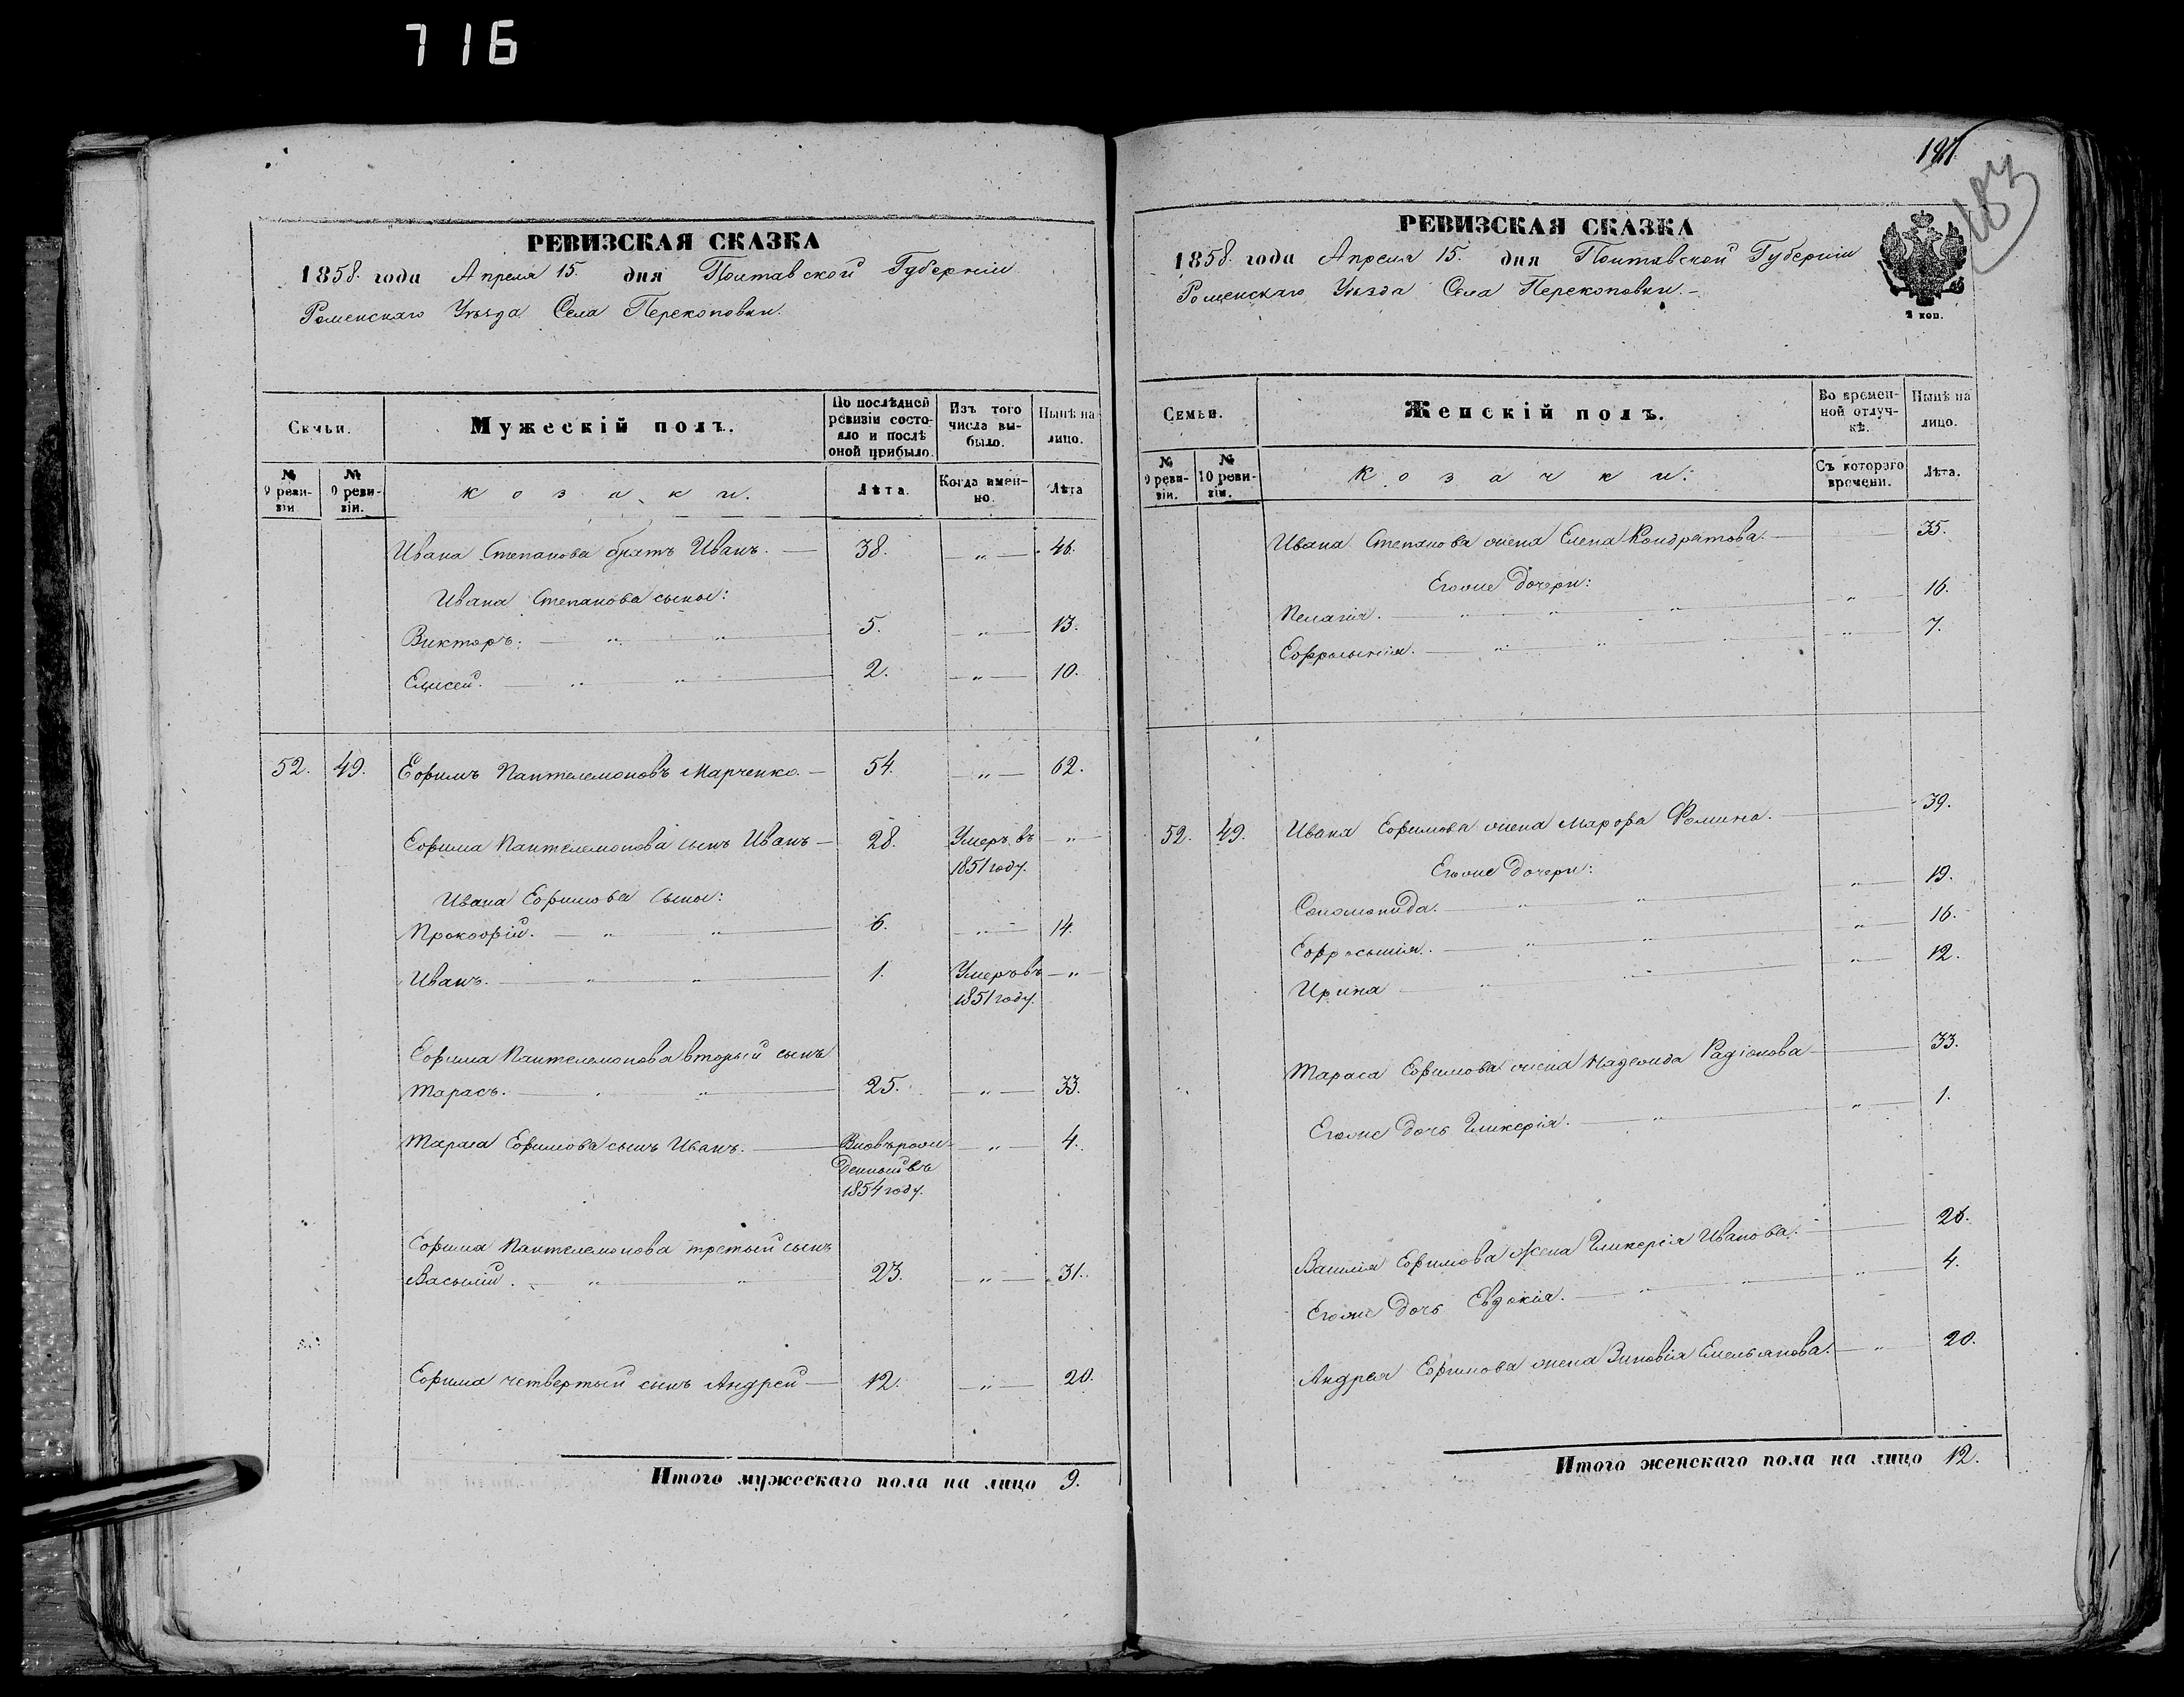 716
РЕВИЗСКАЯ СКАЗКА
1858. года Апреля 15. дня Полтавской Губерніи
Роменскаго Уѣзда Села Перекоповки.
Семьи.
Мужескій полъ.
По послѣдней ревизіи состояло и послѣ оной прибыло.
Изъ того числа выбыло.
Нынѣ на лицо.
№ 9 ревизіи
№ 0 ревизіи.
козаки.
Лѣта.
Когда именно.
Лѣта
Ивана Степанова братъ Иванъ. — 38. — „ — 46.
Ивана Степанова сыны:
Викторъ: — „ „ — 5. — „ — 13.
Елисей. — „ „ — 2. — „ — 10.
52. 49. Ефимъ Пантелемоновъ Марченко. — 54. — „ — 62.
Ефима Пантелемонова сынъ Иванъ — 28. Умеръ въ — „ —
1851 году.
Ивана Ефимова сыны:
Прокофій. — „ „ — 6. — „ — 14.
Иванъ. — „ „ — 1. Умеръ въ — „ —
1851 году.
Ефима Пантелемонова вторый сынъ
Тарасъ. — „ „ — 25. — „ — 33.
Тараса Ефимова сынъ Иванъ. — Вновьрож — „ — 4.
денный въ
1854 году.
Ефима Пантелемонова третый сынъ
Василій. — „ „ — 23. — „ — 31.
Ефима четвертый сынъ Андрей — 12. — „ — 20.
Итого мужескаго пола на лицо 9.
187.
РЕВИЗСКАЯ СКАЗКА
1858. года Апреля 15. дня Полтавской Губерніи
Роменскаго Уѣзда Села Перекоповки. —
2 коп.
Семьи.
Женскій полъ.
Во временной отлучкѣ.
Нынѣ на лицо.
№ 9 ревизіи.
№ 10 ревизіи.
козачки:
Съ котораго времени.
Лѣта.
Ивана Степанова жена Елена Кондратова. — 35.
Егоже дочери:
Пелагія. — „ „ „ — „ — 16.
Ефросынія. — „ „ „ — „ — 7.
52. 49. Ивана Ефимова жена Марфа Фомина. — 39.
Егоже дочери:
Соломонида. — „ „ — „ — 19.
Ефросынія. — „ „ — „ — 16.
Ирина — „ „ — „ — 12.
Тараса Ефимова жена Надежда Радіонова — 33.
Егоже дочь Гликерія. — „ — „ — 1.
Василія Ефимова жена Гликерія Иванова. — 26.
Егоже дочь Евдокія. — „ „ — „ — 4.
Андрея Ефимова жена Зиновія Емельянова. — „ — 20.
Итого женскаго пола на лицо 12.